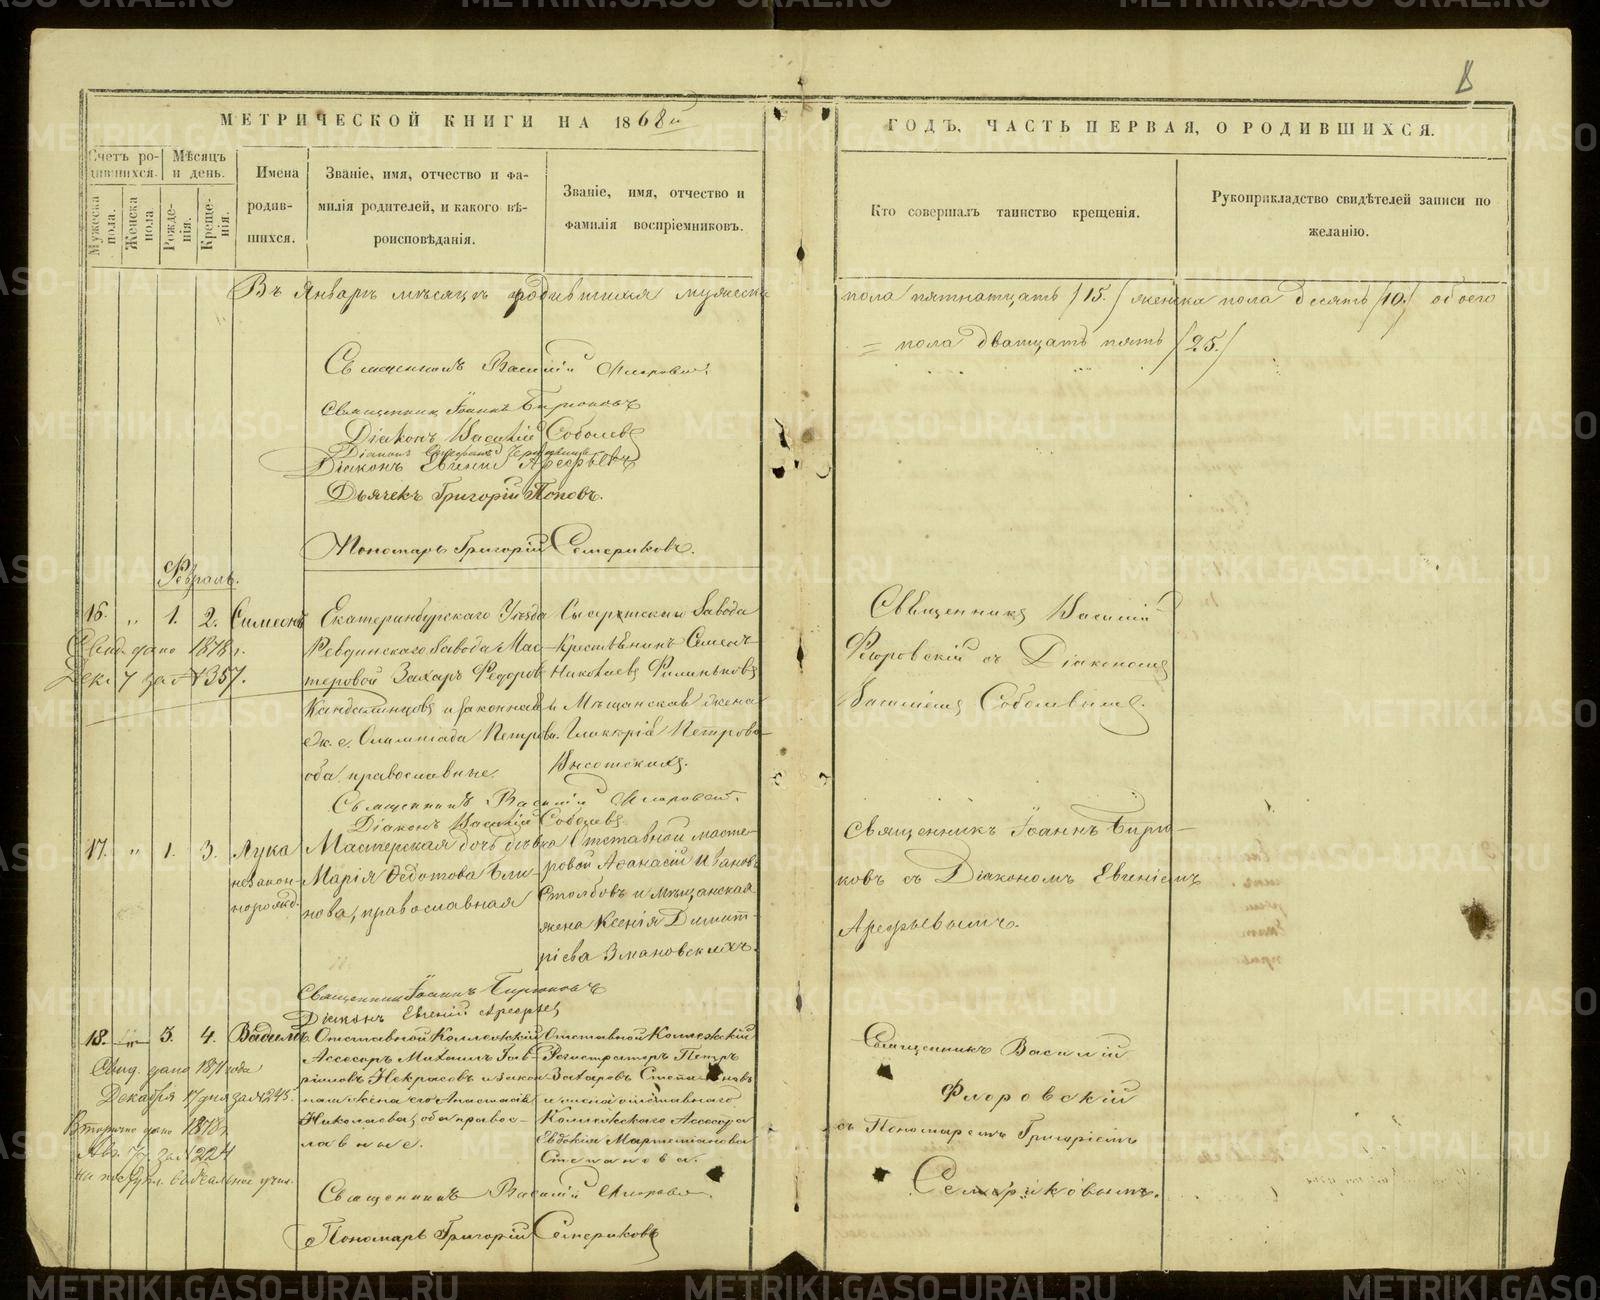 МЕТРИЧЕСКОЙ КНИГИ НА 1868й
ГОДЪ, ЧАСТЬ ПЕРВАЯ, О РОДИВШИХСЯ.
Счетъ ро-
дившихся.
Мужеска
пола.
Женска
пола.
Мѣсяцъ
и день.
Рожде-
нія.
Креще-
нія.
Имена
родив-
шихся.
Званіе, имя, отчество и фа-
милія родителей, и какого вѣ-
роисповѣданія.
Званіе, имя, отчество и
фамилія воспріемниковъ.
Кто совершалъ таинство крещенія.
Рукоприкладство свидѣтелей записи по
желанію.
Въ Январѣ мѣсяцѣ родившихся мужеска
пола пятнатцать /15./ женска пола десять /10./ обоего
= пола дватцать пять /25./
Священникъ Василій Флоровскій.
Священникъ Іоаннъ Бирюковъ
Діаконъ Василій Соболевъ
Діаконъ
Діаконъ Евгеній Арефьевъ
Дьячекъ Григорій Поповъ.
Пономарь Григорій Семериковъ.
Февраль.
16. „ 1. 2. Симеонъ
Свид. дано 1878 г.
Дек. 7 за № 1357.
Екатеринбургскаго Уѣзда
Ревдинскаго Завода Мас-
теровой Захаръ Федоровъ
Кандалинцовъ и законная
ж. е. Олимпіада Петрова.
оба православные.
Сысертскаго Завода
Крестьянинъ Семенъ
Николаевъ Филиньковъ
и Мѣщанская жена
Гликерія Петрова
Высотскихъ.
Священникъ Василій
Флоровскій съ Діакономъ
Василіемъ Соболевымъ.
Священникъ Василій Флоровскій.
Діаконъ Василій Соболевъ
17. „ 1. 3. Лука
незакон-
норожд.
Мастерская дочь дѣвка
Марія Федотова Бли-
нова, православная
Отставной масте-
ровой Афанасій Иванов.
Столбовъ и мѣщанская
жена Ксенія Димит-
ріева Змановскихъ.
Священникъ Іоаннъ Бирю-
ковъ съ Діакономъ Евгеніемъ
Арефьевымъ.
Священникъ Іоаннъ Бирюковъ
Діаконъ Евгеній Арефьев
18. „ 3. 4. Вадимъ.
Свид. дано 1871 года
Декабря 17 дня за № 1245.
Вторично дано 1878 г.
Авг. 7 за № 1224
Отставной Коллежскій
Ассесоръ Михаилъ Гав-
риловъ Некрасовъ и закон-
ная жена его Анастасія
Николаева, оба правос-
лавные.
Отставной Коллежскій
Регистраторъ Петръ
Захаровъ Степановъ
и жена отставнаго
Коллежскаго Ассесора
Евдокія Мартемianова
Степанова.
Священникъ Василій
Флоровскій
съ Пономаремъ Григоріемъ
Семериковымъ.
Священникъ Василій Флоровскій.
Пономарь Григорій Семериковъ
METRIKI.GASO-URAL.RU